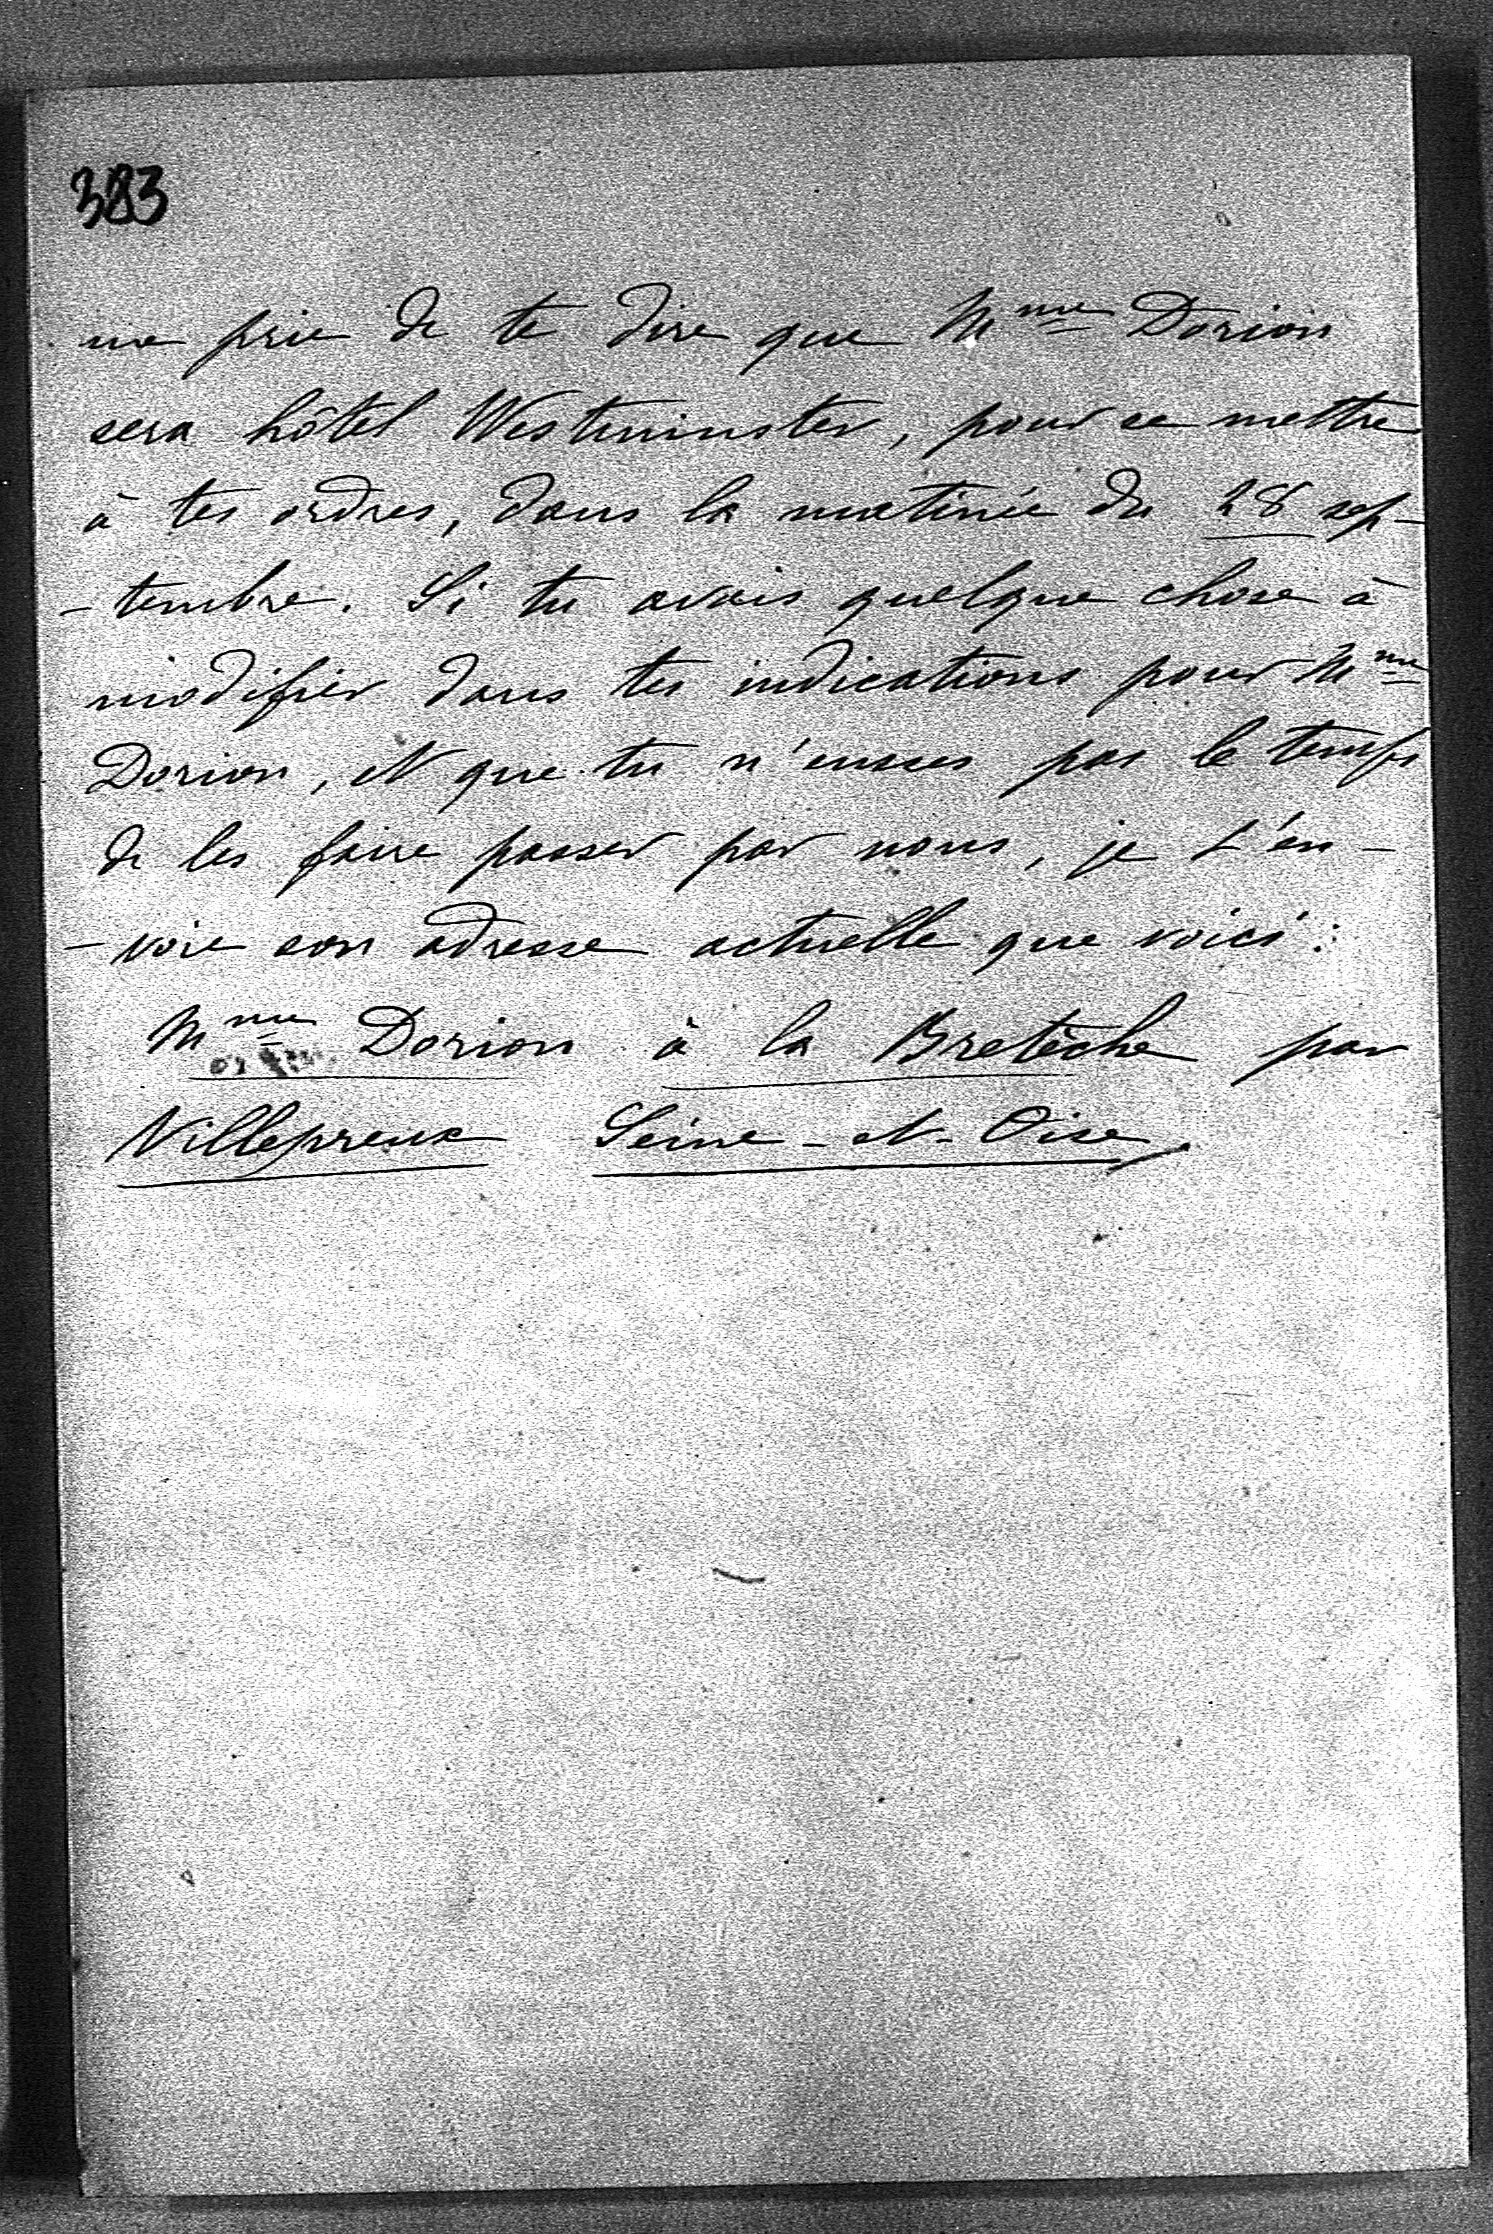 383
me prie de te dire que Mme Dorion
sera hôtel Westminster, pour se mettre
à tes ordres, dans la matinée du 28 sep-
-tembre. Si tu avais quelque chose à
modifier dans tes indications pour Mme
Dorion, et que tu n'eusses pas le temps
de les faire passer par nous, je t'en-
-voie son adresse actuelle que voici :
Mme Dorion à la Bretèche par
Villepreux Seine-et-Oise.